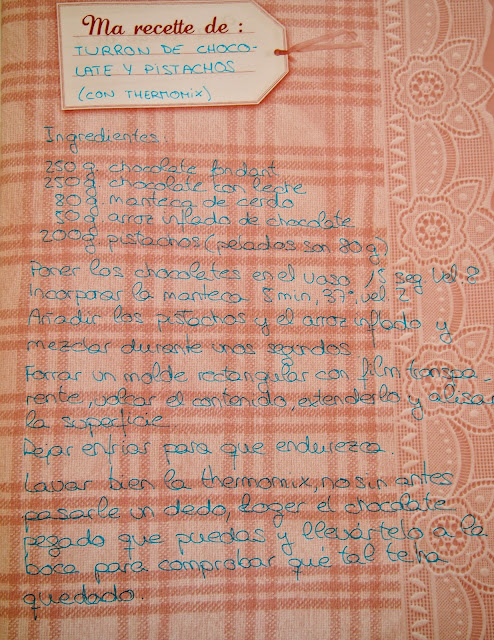 Ma recette de :
TURRON DE CHOCO-
LATE Y PISTACHOS
(CON THERMOMIX)
Ingredientes:
250 g chocolate fondant
250 g chocolate con leche
80 g manteca de cerdo
50 g arroz inflado de chocolate
200 g pistachos (pelados son 80 g)
Poner los chocolates en el vaso, 15 seg. Vel. 8
Incorporar la manteca 8 min, 37º, vel. 2
Añadir los pistachos y el arroz inflado y
mezclar durante unos segundos
Forrar un molde rectangular con film transpa-
rente, volcar el contenido, extenderlo y alisar
la superficie
Dejar enfriar para que endurezca.
Lavar bien la thermomix, no sin antes
pasarle un dedo, koger el chocolate
pegado que puedas y llevártelo a la
boca para comprobar qué tal te ha
quedado.